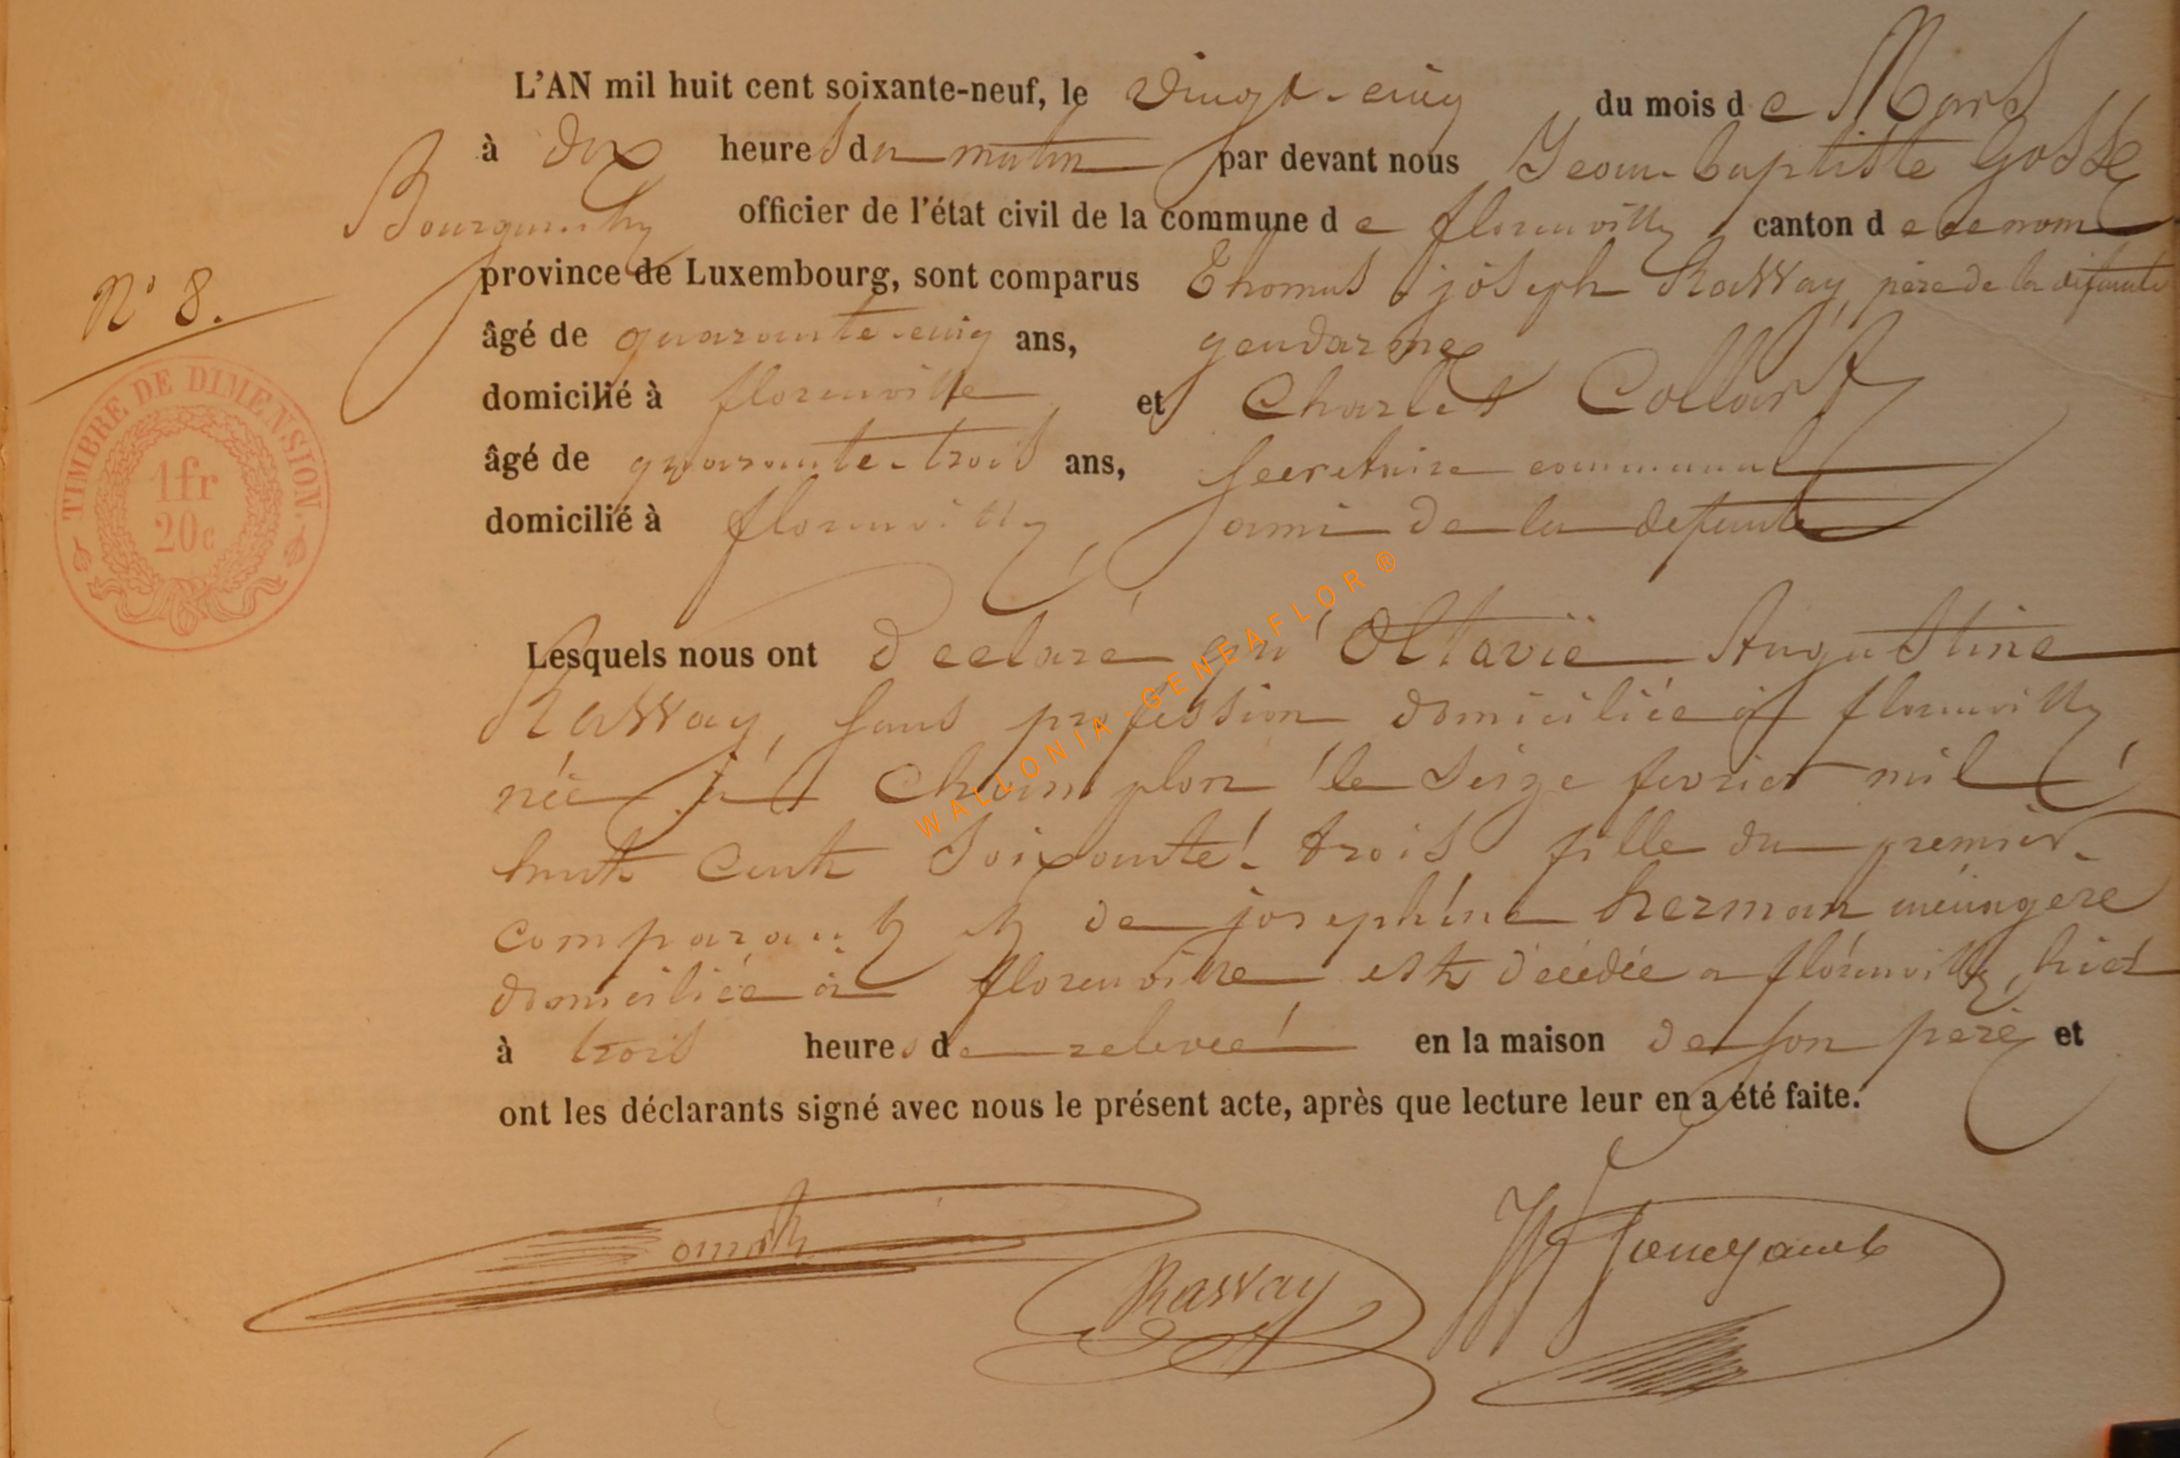 L'AN mil huit cent soixante-neuf, le vingt-cinq du mois de Mars
à dix heures du matin par devant nous Jean-baptiste Gosse
Bourgmestre officier de l'état civil de la commune de florenville canton de ce nom
province de Luxembourg, sont comparus Thomas joseph Rassay, père de la défunte
N° 8.
âgé de quarante-cinq ans, gendarme
domicilié à florenville et Charles Collart
âgé de quarante-trois ans, secretaire communal
domicilié à florenville, ami de la defunte
TIMBRE DE DIMENSION
1fr
20c
Lesquels nous ont déclaré qu'Octavie Augustine
Rassay, sans profession domiciliée à florenville
née à Champlon le seize fevrier mil
huit cent soixante-trois fille du premier
comparant et de josephine herman ménagère
domiciliée à florenville est décédée a florenville, hier
à trois heures de relevée en la maison de son père et
ont les déclarants signé avec nous le présent acte, après que lecture leur en a été faite.
Rassay
WALLONIA-GENEAFLOR ®